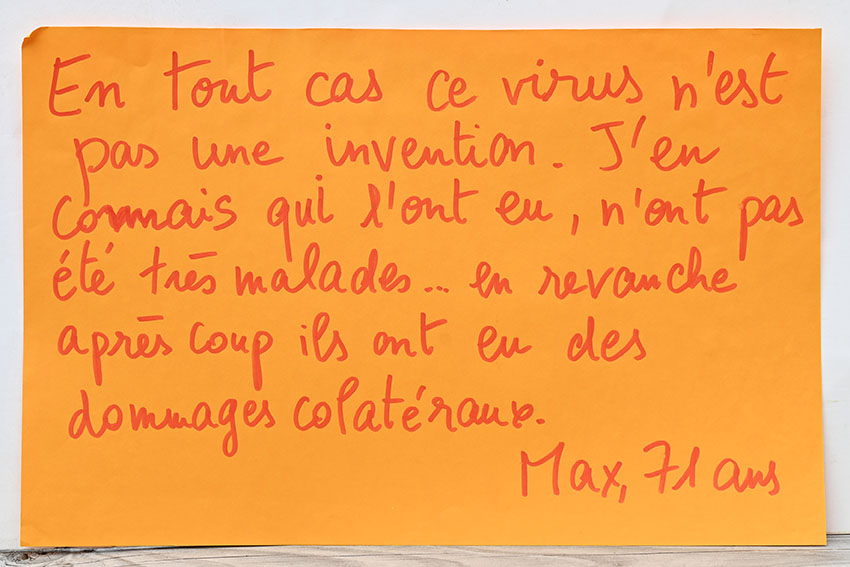 En tout cas ce virus n'est
pas une invention. J'en
connais qui l'ont eu, n'ont pas
été très malades... en revanche
après coup ils ont eu des
dommages colatéraux.
Max, 71 ans